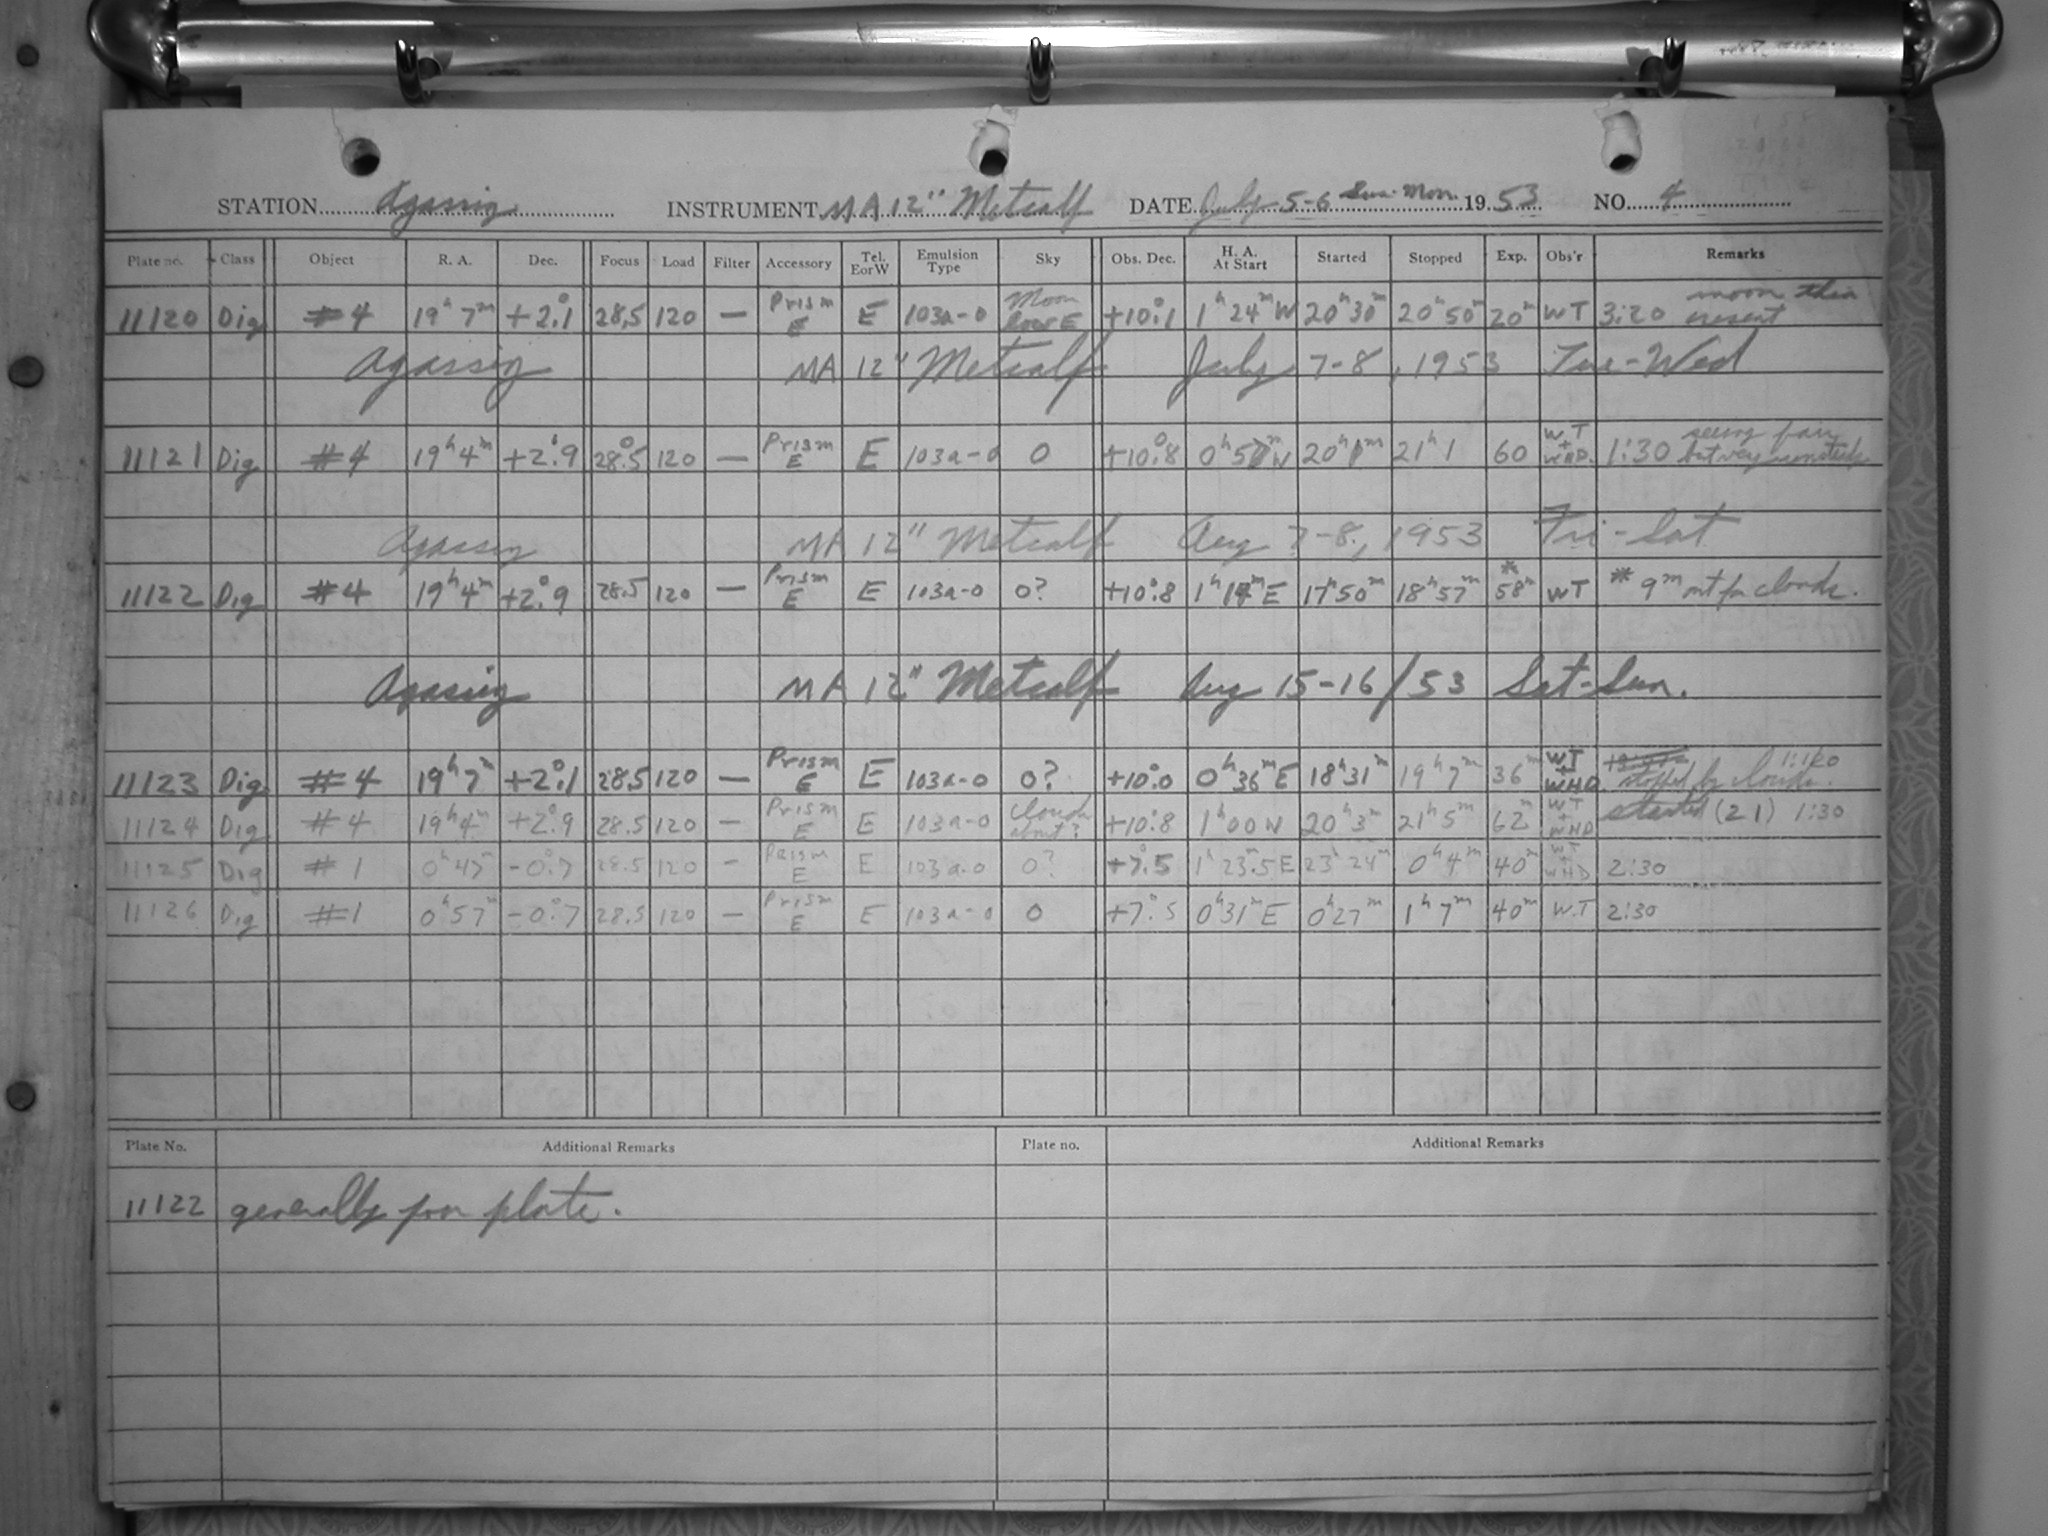 STATION Agassiz INSTRUMENT MA 12" Metcalf DATE July 5-6 Sun-Mon 1953 NO. 4
Plate no. Class Object R. A. Dec. Focus Load Filter Accessory Tel. E or W Emulsion Type Sky Obs. Dec. H. A. At Start Started Stopped Exp. Obs'r Remarks
11120 Dig #4 19h 7m +2°.1 28.5 120 — Prism E E 103a-0 Moon low E +10°.1 1h 24m W 20h 30m 20h 50m 20m WT 3:20 moon
Agassiz MA 12" Metcalf July 7-8, 1953 Tue-Wed
11121 Dig #4 19h 4m +2°.9 28.5 120 — Prism E E 103a-0 0 +10°.8 W 21h 1 60 WT + WHD. 1:30 seeing but very
Agassiz MA 12" Metcalf Aug 7-8, 1953 Fri-Sat
11122 Dig #4 19h 4m +2°.9 28.5 120 — Prism E E 103a-0 0? +10°.8 E 17h 50m 18h 57m *58m WT * 9m out for clouds.
Agassiz MA 12" Metcalf Aug 15-16/53 Sat-Sun.
11123 Dig #4 19h 7m +2°.1 28.5 120 — Prism E E 103a-0 0? +10°.0 0h 36m E 18h 31m 19h 7m 36m WT + WHD. stopped by clouds.
11124 Dig #4 19h 4m +2°.9 28.5 120 — Prism E E 103a-0 clouds about? +10°.8 1h 00 W 20h 3m 21h 5m 62m WT + WHD started (21) 1:30
11125 Dig #1 0h 47m -0°.7 28.5 120 — Prism E E 103a-0 0? +7°.5 1h 23m.5 E 23h 24m 0h 4m 40m WT + WHD 2:30
11126 Dig #1 0h 57m -0°.7 28.5 120 — Prism E E 103a-0 0 +7°.5 0h 31m E 0h 27m 1h 7m 40m W.T 2:30
Plate No. Additional Remarks Plate no. Additional Remarks
11122 generally poor plate.